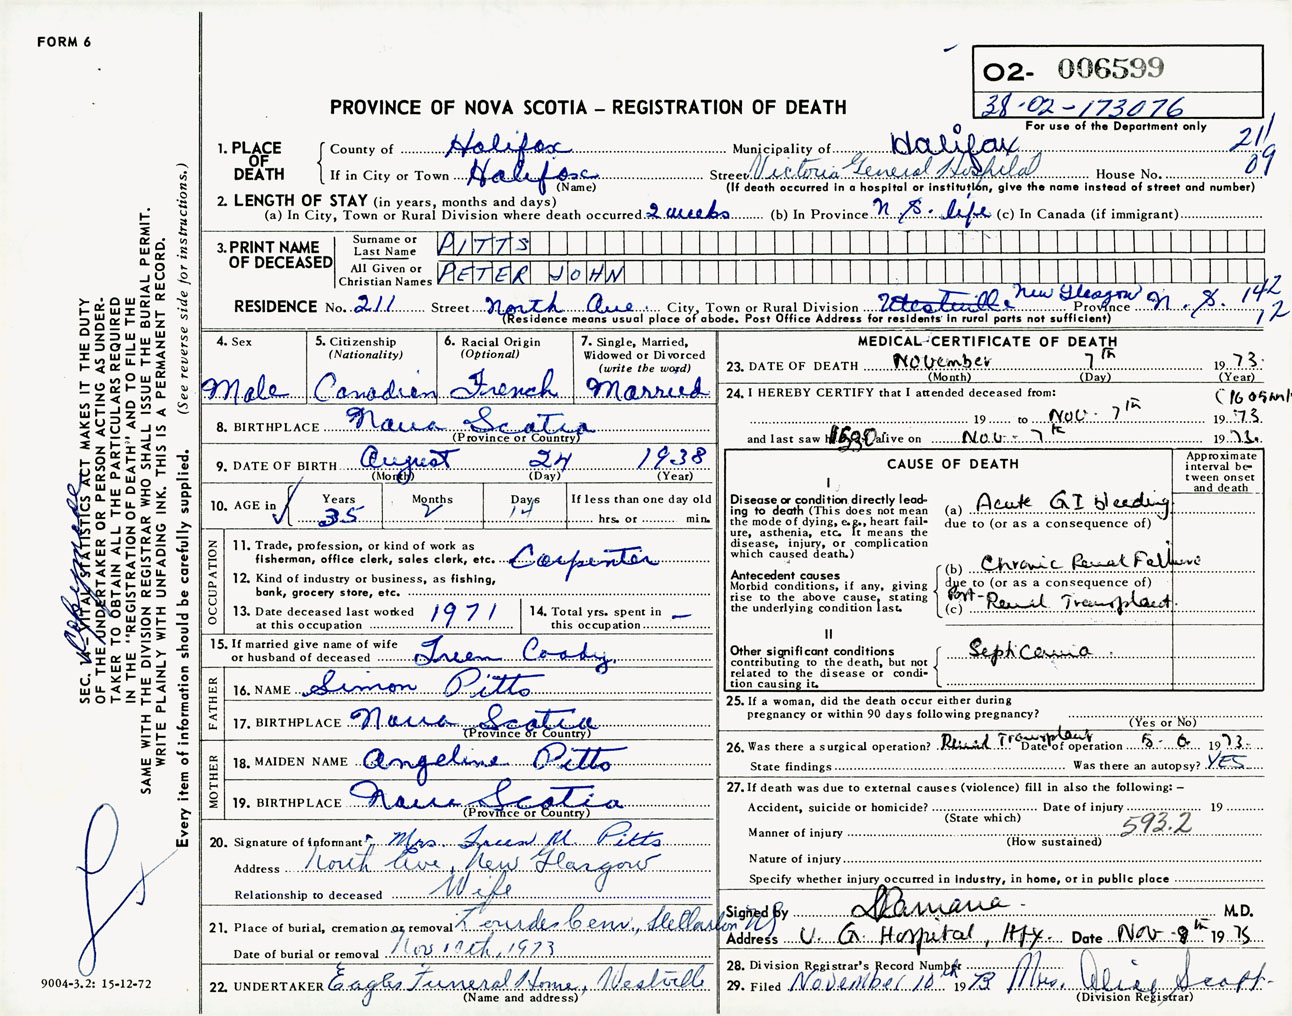 FORM 6
O2- 006599
38-02-173076
For use of the Department only
PROVINCE OF NOVA SCOTIA – REGISTRATION OF DEATH
211
09
1. PLACE OF DEATH
County of Halifax Municipality of Halifax
If in City or Town Halifax Street Victoria General Hospital House No.
(Name) (If death occurred in a hospital or institution, give the name instead of street and number)
2. LENGTH OF STAY (in years, months and days)
(a) In City, Town or Rural Division where death occurred 2 weeks (b) In Province N.S. life (c) In Canada (if immigrant)
3. PRINT NAME OF DECEASED
Surname or Last Name PITTS
All Given or Christian Names PETER JOHN
RESIDENCE No. 211 Street North Ave. City, Town or Rural Division Westville New Glasgow Province N.S. 142
12
(Residence means usual place of abode. Post Office Address for residents in rural parts not sufficient)
4. Sex
Male
5. Citizenship
(Nationality)
Canadian
6. Racial Origin
(Optional)
French
7. Single, Married,
Widowed or Divorced
(write the word)
Married
8. BIRTHPLACE Nova Scotia
(Province or Country)
9. DATE OF BIRTH August 24 1938
(Month) (Day) (Year)
10. AGE in Years 35 Months 2 Days 14 If less than one day old
hrs. or min.
OCCUPATION
11. Trade, profession, or kind of work as
fisherman, office clerk, sales clerk, etc. Carpenter
12. Kind of industry or business, as fishing,
bank, grocery store, etc.
13. Date deceased last worked
at this occupation 1971
14. Total yrs. spent in
this occupation –
15. If married give name of wife
or husband of deceased
FATHER
16. NAME Simon Pitts
17. BIRTHPLACE Nova Scotia
(Province or Country)
MOTHER
18. MAIDEN NAME Angeline Pitts
19. BIRTHPLACE Nova Scotia
(Province or Country)
20. Signature of informant Mrs. M. Pitts
Address North Ave, New Glasgow
Relationship to deceased Wife
21. Place of burial, cremation or removal Lourdes Cem. Stellarton NS
Date of burial or removal Nov 1973
22. UNDERTAKER Eagles Funeral Home, Westville
(Name and address)
MEDICAL CERTIFICATE OF DEATH
23. DATE OF DEATH November 7th 1973.
(Month) (Day) (Year)
24. I HEREBY CERTIFY that I attended deceased from:
19 to Nov. 7th 1973
and last saw h alive on Nov - 7th 1973.
CAUSE OF DEATH
Approximate
interval be-
tween onset
and death
I
Disease or condition directly lead-
ing to death (This does not mean
the mode of dying, e.g., heart fail-
ure, asthenia, etc. It means the
disease, injury, or complication
which caused death.)
(a) Acute GI bleeding
due to (or as a consequence of)
Antecedent causes
Morbid conditions, if any, giving
rise to the above cause, stating
the underlying condition last.
(b) Chronic Renal Failure
due to (or as a consequence of)
(c) Post- Renal Transplant
II
Other significant conditions
contributing to the death, but not
related to the disease or condi-
tion causing it.
Septicemia
25. If a woman, did the death occur either during
pregnancy or within 90 days following pregnancy?
(Yes or No)
26. Was there a surgical operation? Renal Transplant Date of operation 5-6 1973.
State findings Was there an autopsy? YES
27. If death was due to external causes (violence) fill in also the following: –
Accident, suicide or homicide? Date of injury 19
(State which)
593.2
Manner of injury
(How sustained)
Nature of injury
Specify whether injury occurred in industry, in home, or in public place
Signed by M.D.
Address V. G. Hospital, Hfx. Date Nov - 8th 1973
28. Division Registrar's Record Number
29. Filed November 10th 1973 Mrs. Scott
(Division Registrar)
SEC. VITAL STATISTICS ACT MAKES IT THE DUTY
OF THE UNDERTAKER OR PERSON ACTING AS UNDER-
TAKER TO OBTAIN ALL THE PARTICULARS REQUIRED
IN THE "REGISTRATION OF DEATH" AND TO FILE THE
SAME WITH THE DIVISION REGISTRAR WHO SHALL ISSUE THE BURIAL PERMIT.
WRITE PLAINLY WITH UNFADING INK. THIS IS A PERMANENT RECORD.
Every item of information should be carefully supplied. (See reverse side for instructions.)
9004-3.2: 15-12-72